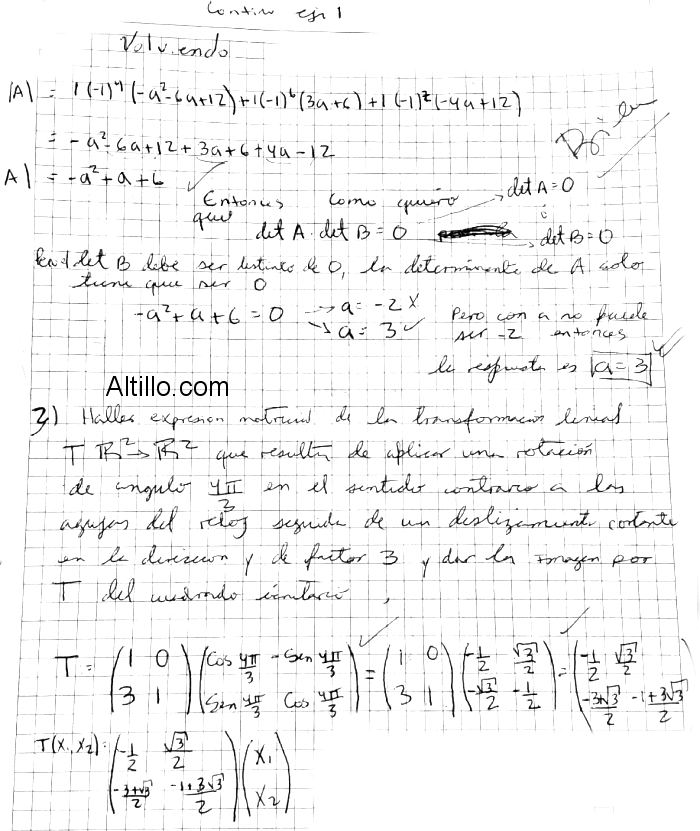 Continúo ej 1
Volviendo
|A| = 1(-1)^4(-a²-6a+12)+1(-1)^6(3a+6)+1(-1)^2(-4a+12)
= -a²-6a+12+3a+6+4a-12
A| = -a²+a+6
Bien
Entonces como quiero que
det A = 0
ó
det A · det B = 0
det B = 0
det B debe ser distinto de 0, la determinante de A solo
tiene que ser 0
-a²+a+6 = 0 → a = -2 x
→ a = 3 ✓
Pero como a no puede
ser -2 entonces
la respuesta es a = 3
Altillo.com
3) Hallar expresion matricial de la transformacion lineal
T R² → R² que resulta de aplicar una rotación
de angulo 4π/3 en el sentido contrario a las
agujas del reloj seguida de un deslizamiento cortante
en la direccion y de factor 3 y dar la imagen por
T del cuadrado unitario,
T = (1 0; 3 1) (Cos 4π/3 -Sen 4π/3; Sen 4π/3 Cos 4π/3) = (1 0; 3 1) (-1/2 √3/2; -√3/2 -1/2) = (-1/2 √3/2; -3√3/2 -1+3√3/2)
T(x₁, x₂): (-1/2 √3/2; -3+√3/2 -1+3√3/2) (x₁; x₂)